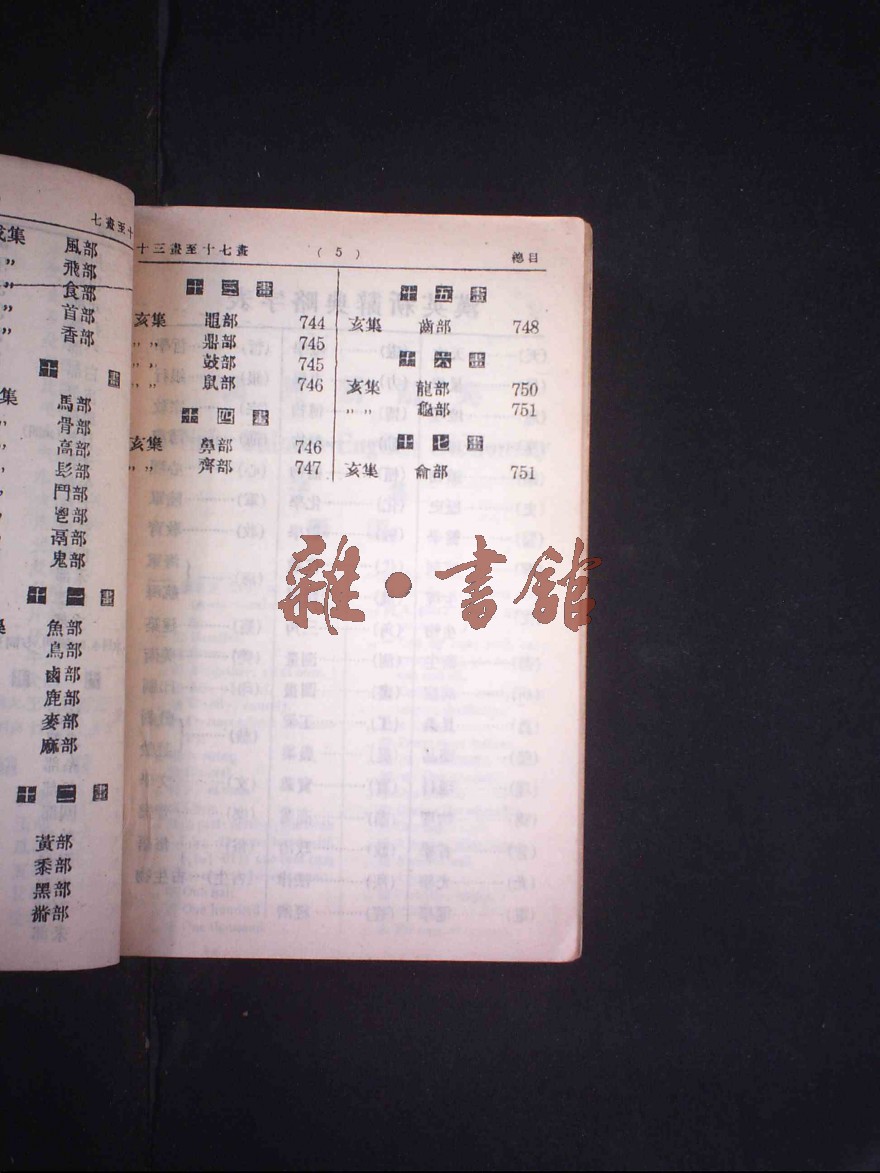 七畫至十
集
風部
〃 飛部
〃 食部
〃 首部
〃 香部
十 畫
集 馬部
骨部
高部
髟部
鬥部
鬯部
鬲部
鬼部
十一畫
魚部
鳥部
鹵部
鹿部
麥部
麻部
十二畫
黃部
黍部
黑部
黹部
十三畫至十七畫 (5) 總目
十三畫
亥集 黽部 744
〃〃 鼎部 745
〃〃 鼓部 745
〃〃 鼠部 746
十四畫
亥集 鼻部 746
〃〃 齊部 747
十五畫
亥集 齒部 748
十六畫
亥集 龍部 750
〃〃 龜部 751
十七畫
亥集 龠部 751
雜·書館